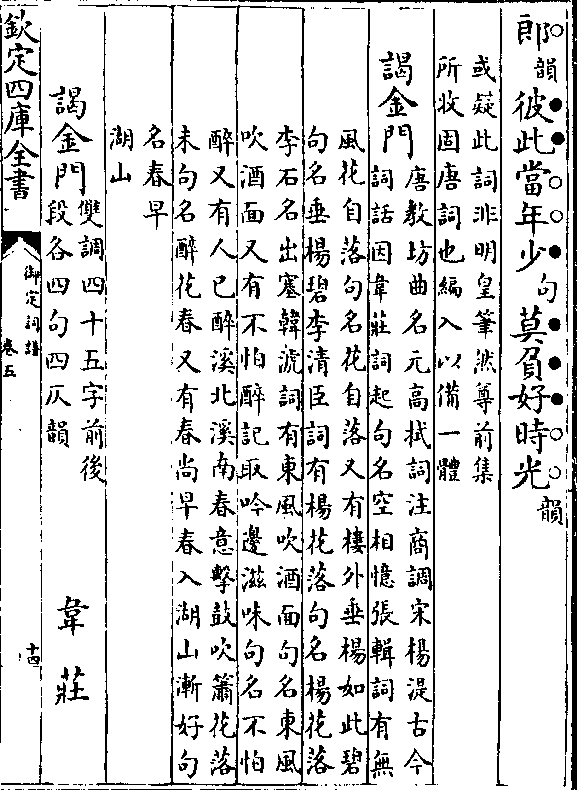 郎韻彼此當年少句莫負好時光韻
或疑此詞非明皇筆然尊前集
所收固唐詞也編入以備一體
謁金門唐教坊曲名元高拭詞注商調宋楊湜古今
詞話因韋莊詞起句名空相憶張輯詞有無
風花自落句名花自落又有樓外垂楊如此碧
句名垂楊碧李清臣詞有楊花落句名楊花落
李石名出塞韓淲詞有東風吹酒面句名東風
吹酒面又有不怕醉記取吟邊滋味句名不怕
醉又有人已醉溪北溪南春意擊鼓吹簫花落
未句名醉花春又有春尚早春入湖山漸好句
名春早
湖山
謁金門雙調四十五字前後
段各四句四仄韻
韋莊
欽定四庫全書
御定詞譜
卷五
十四